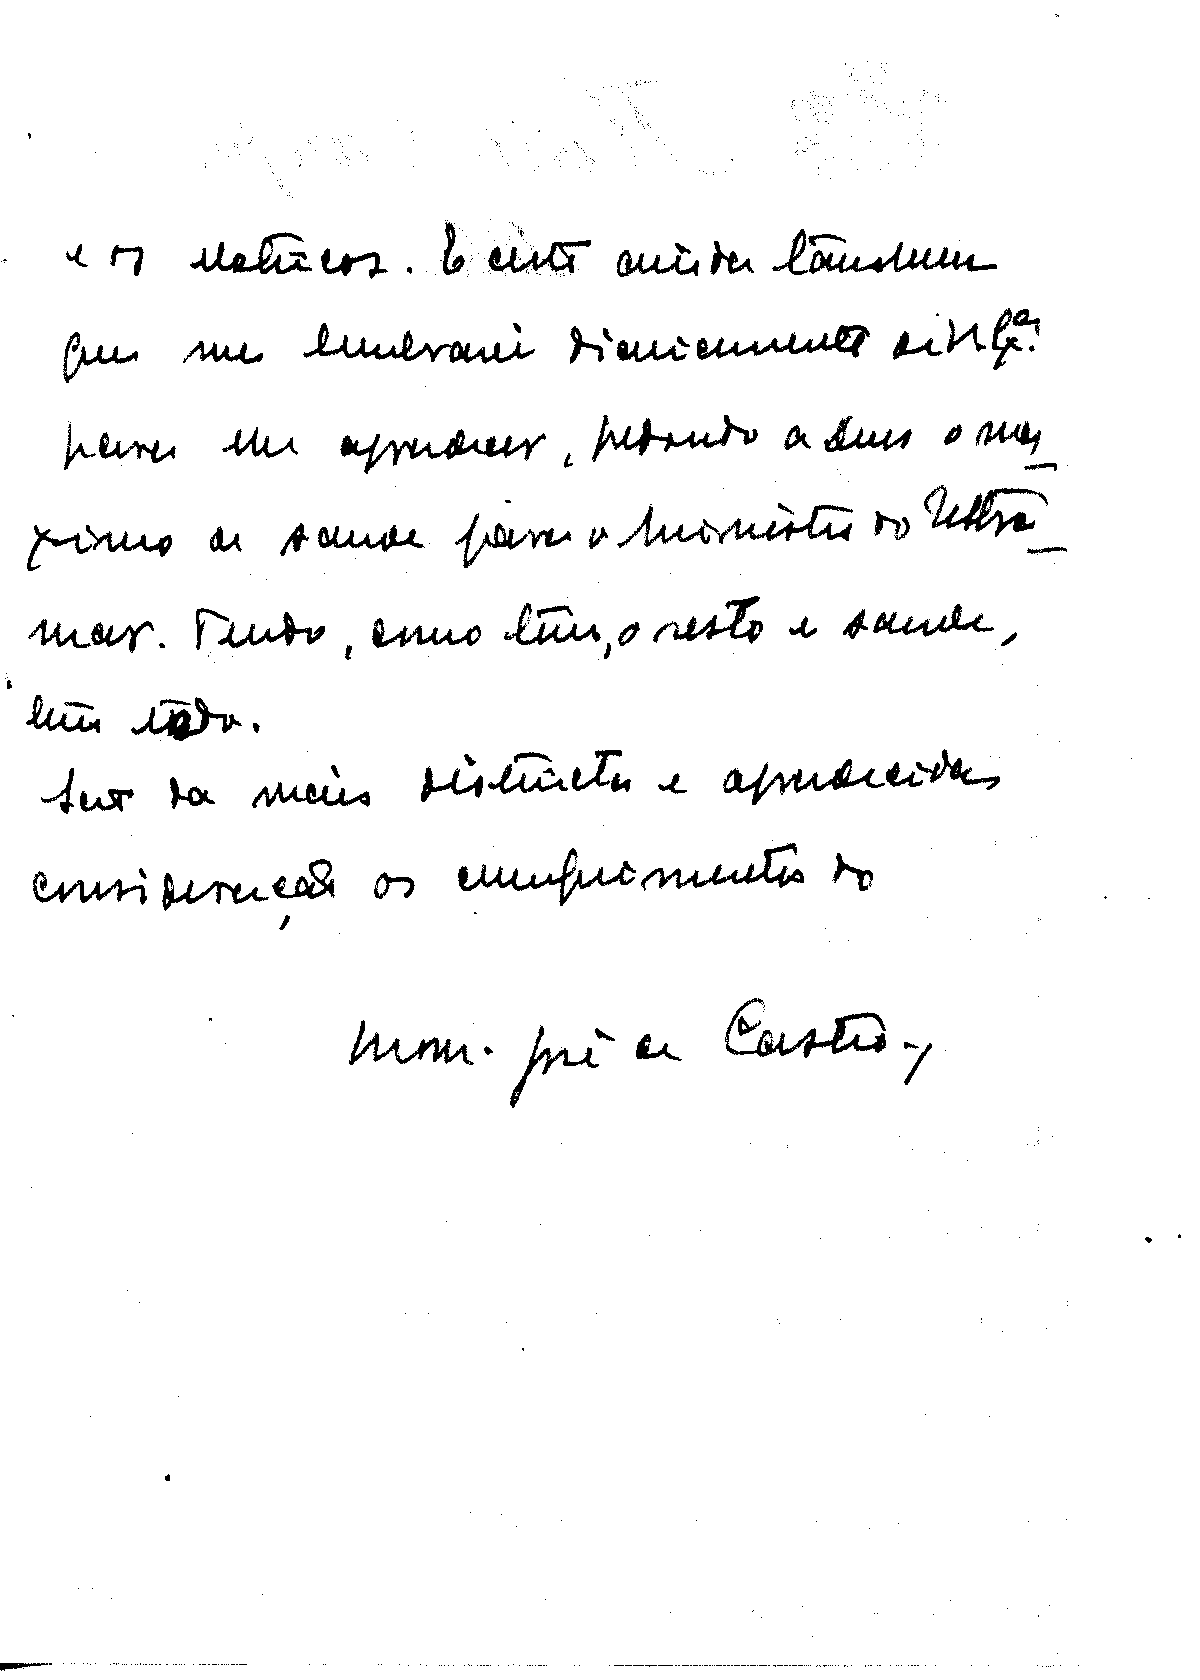 e os viaticos. E creia ainda tambem
que me lembrarei diariamente de V. Exª.
para lhe agradecer, pedindo a Deus o ma_
ximo de saude para o Ministro do Ultra_
mar. Tendo, como tem, o resto e saude,
tem tudo.
São da mais distincta e agradecida
consideração os cumprimentos do
Mons. José de Castro